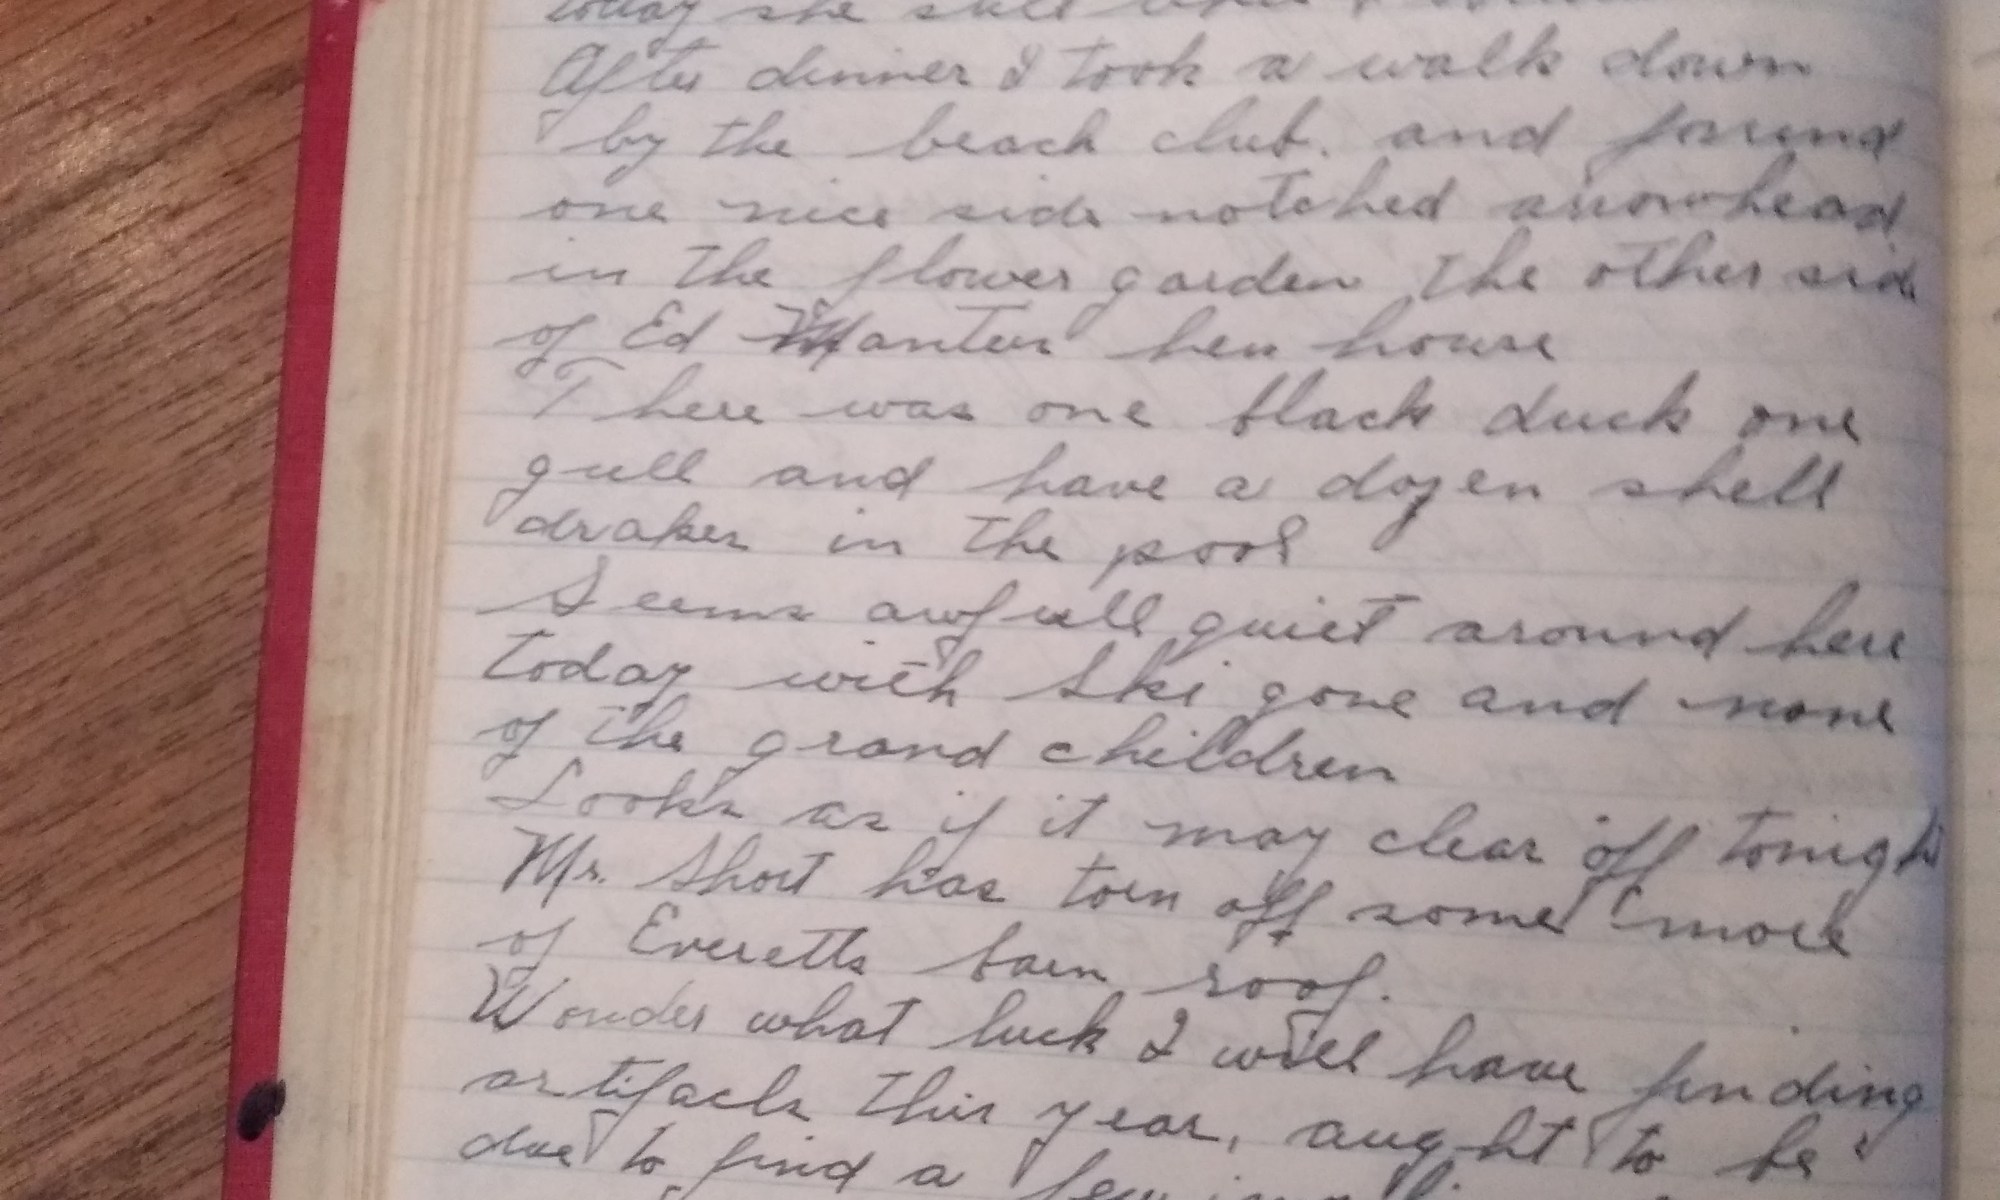 today she still
After dinner I took a walk down
by the beach club. and found
one nice side notched arrowhead
in the flower garden the other side
of Ed Manters hen house
There was one black duck one
gull and have a dozen shell
drakes in the pool
Seems awfull quiet around here
today with Ski gone and none
of the grand children
Looks as if it may clear off tonight
Mr. Short has torn off some more
of Everetts barn roof.
Wonder what luck I will have finding
artifacts this year, aught to be
due to find a few